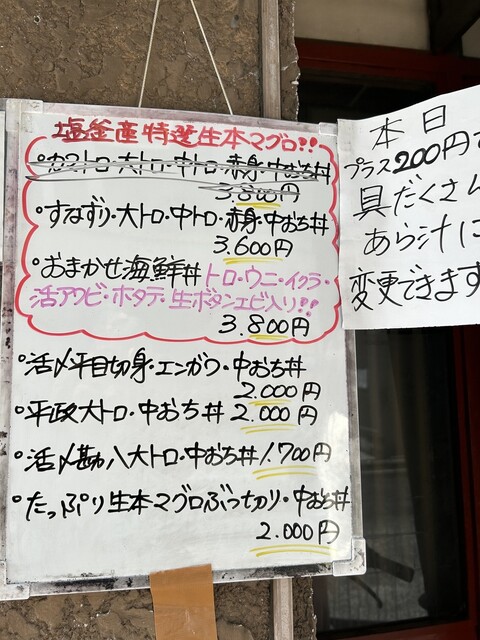 塩釜産特選生本マグロ!!
°カストロ・大トロ・中トロ・赤身・中おち丼
3.800円
°すなずり・大トロ・中トロ・赤身・中おち丼
3.600円
°おまかせ海鮮丼トロ・ウニ・イクラ・
活アワビ・ホタテ・生ボタンエビ入り!!
3.800円
°活〆平目切身・エンガワ・中おち丼
2.000円
°平政大トロ・中おち丼 2.000円
°活〆勘八大トロ・中おち丼1.700円
°たっぷり生本マグロぶつ切り・中おち丼
2.000円
本日
プラス200円で
具だくさん
あら汁に
変更できます